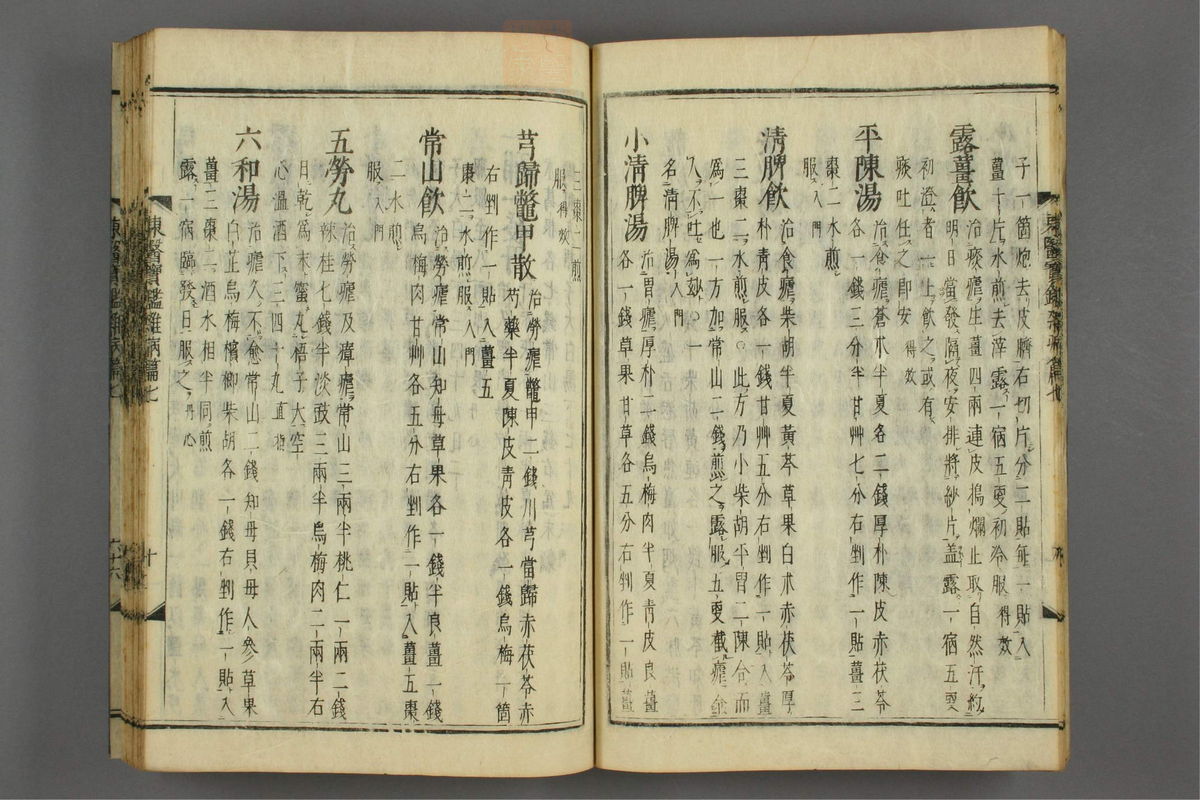 子一箇炮去皮臍右切片分二貼每一貼入
薑十片水煎去滓露一宿五更初冷服得效
露薑飮治痰瘧生薑四兩連皮搗爛止取自然汁約
明日當發隔夜安排將紗片盖露一宿五更
初澄者一上飮之或有
痰吐任之卽安得效
平陳湯治食瘧蒼朮半夏各二錢厚朴陳皮赤茯苓
各一錢三分半甘艸七分右剉作一貼薑三
棗二水煎
服入門
淸脾飮治食瘧柴胡半夏黃芩草果白朮赤茯苓厚
朴靑皮各一錢甘艸五分右剉作一貼入薑
三棗二水煎服○此方乃小柴胡平胃二陳合而
爲一也一方加常山二錢煎之露服五更截瘧
人不吐爲妙○一
名淸脾湯入門
小淸脾湯治胃瘧厚朴二錢烏梅肉半夏靑皮良薑
各一錢草果甘草各五分右剉作一貼薑
東醫寶鑑雜病篇七
九
三棗二煎
服得效
芎歸鼈甲散治勞瘧鼈甲二錢川芎當歸赤茯苓赤
芍藥半夏陳皮靑皮各一錢烏梅一箇
右剉作一貼入薑五
棗二水煎服入門
常山飮治勞瘧常山知母草果各一錢半良薑一錢
烏梅肉甘艸各五分右剉作一貼入薑五棗
二水煎
服入門
五勞丸治勞瘧及瘴瘧常山三兩半桃仁一兩二錢
辣桂七錢半淡豉三兩半烏梅肉二兩半右
日乾爲末蜜丸梧子大空
心溫酒下三四十丸直指
六和湯治瘧久不愈常山二錢知母貝母人參草果
白芷烏梅檳榔柴胡各一錢右剉作一貼入
薑三棗二酒水相半同煎
露一宿臨發日服之丹心
東醫寶鑑雜病篇七
十